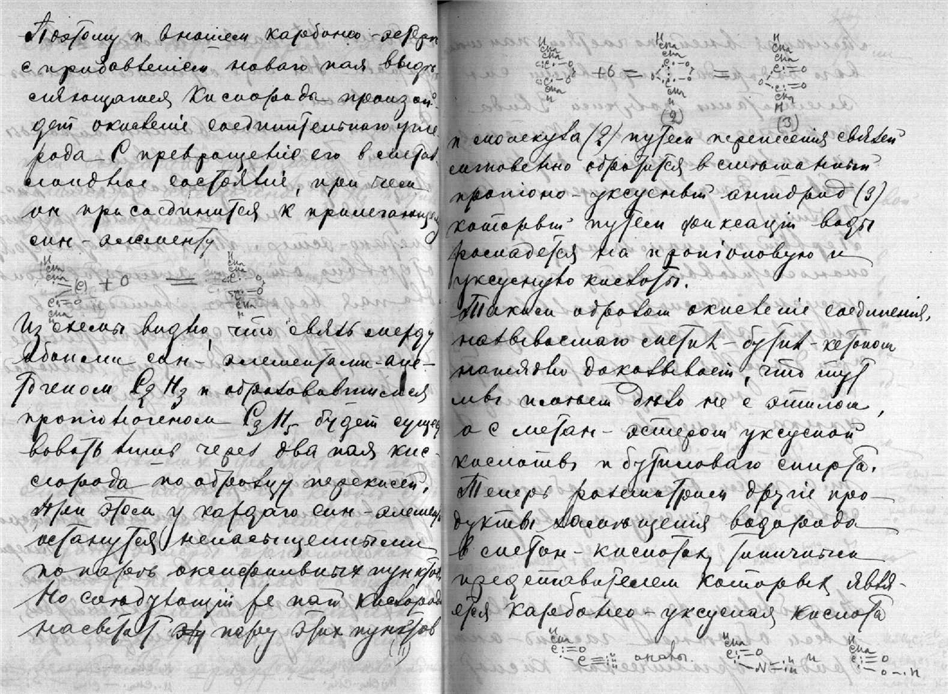 Поэтому и в нашем карбонео-эстере
с прибавленiем новаго пая выдѣ-
ляющагося кислорода произой-
дет окисленiе соединительнаго угле
рода С превращенiе его в метал-
лоидное состоянiе, при чем
он присоединится к прилегающему
син-элементу
+ О =
Из схемы видно, что связь между
обоими син-элементами-аце-
тогеном C₂H₃ и образовавшимся
пропiоногеном C₃H₅ будет сущест
вовать лишь через два пая кис-
лорода по образцу перекисей.
При этом у каждаго син-элемента
останутся ненасыщенными
по парѣ оксифильных пунктов
Но слѣдующiй же пай кислорода
насытит эту пару этих пунктов
(1)
+ О = =
(2) (3)
и молекула (2) путем перенесенiя связей
мгновенно обратится в смѣшанный
пропiоно уксусный ангидрид (3)
который путем фиксацiи воды
распадется на пропiоновую и
уксусную кислоты.
Таким образом окисленiе соединенiя,
называемаго метил-бутил-кетоном
наглядно доказывает, что тут
мы имѣем дѣло не с этилом,
а с метан-эстером уксусной
кислоты и бутиловаго спирта.
Теперь разсмотрим другiе про-
дукты замѣщенiя водорода
в метан-кислотах, типичным
представителем которых явля-
ется карбонео-уксусная кислота